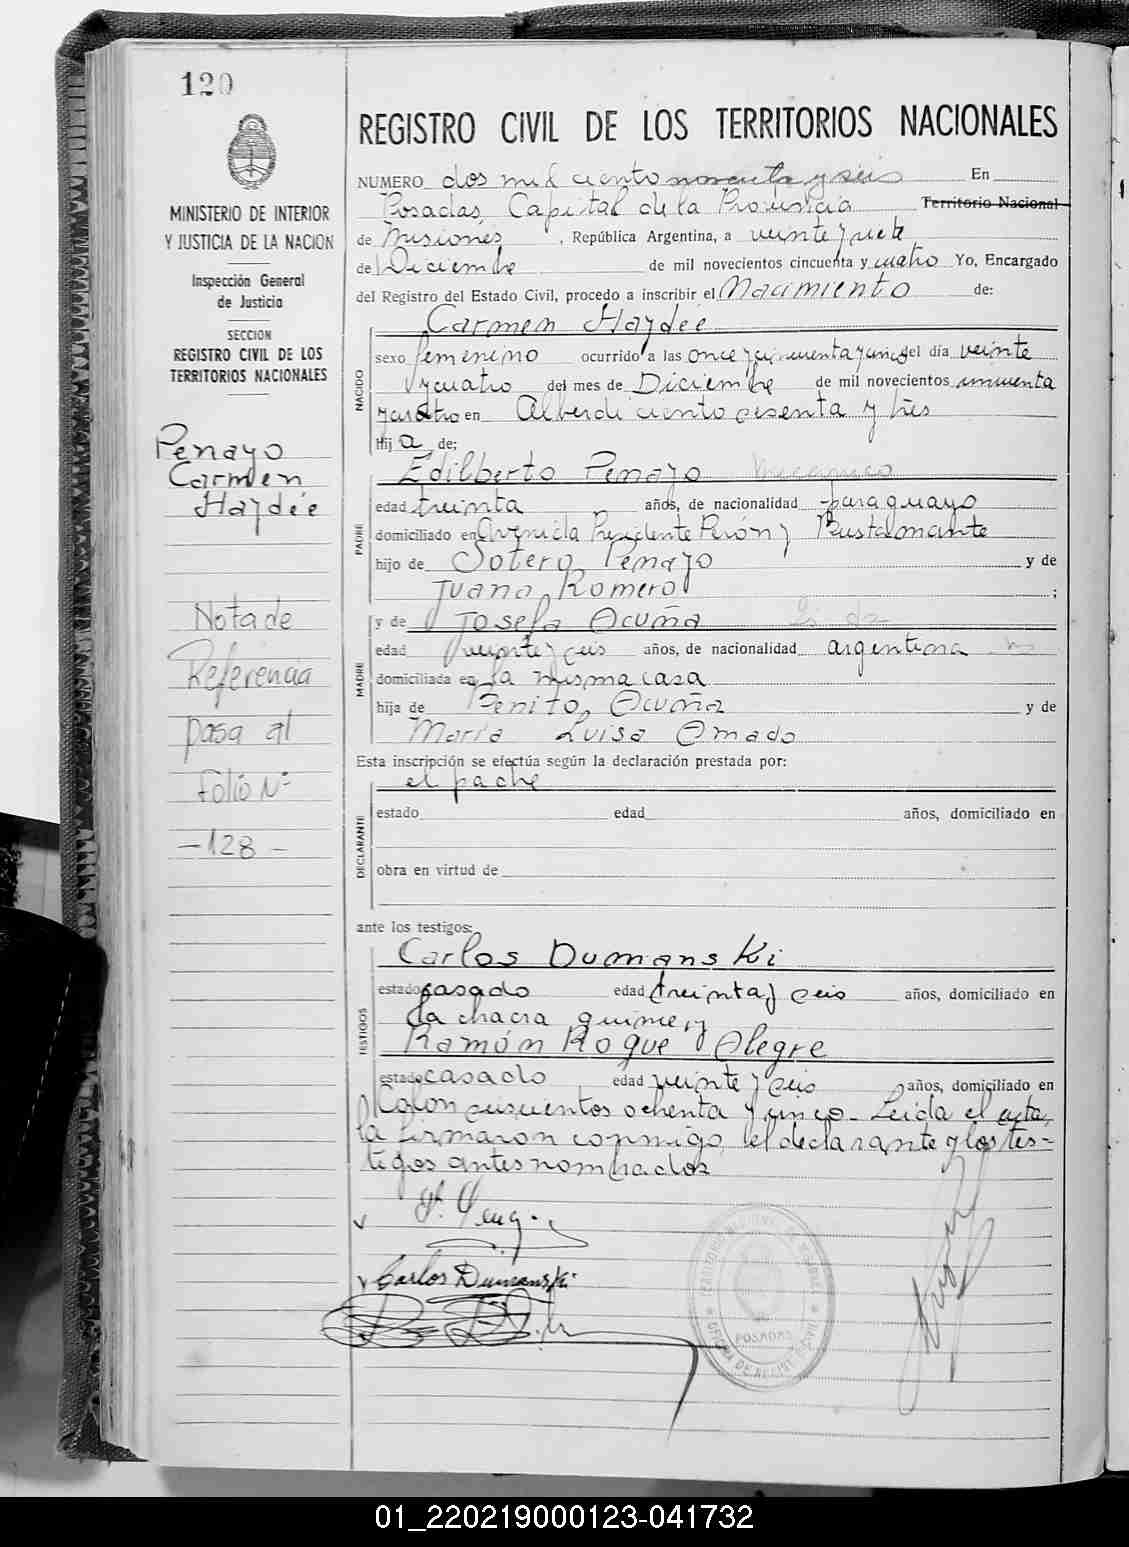 120
REGISTRO CIVIL DE LOS TERRITORIOS NACIONALES
MINISTERIO DE INTERIOR
Y JUSTICIA DE LA NACION
Inspección General
de Justicia
SECCION
REGISTRO CIVIL DE LOS
TERRITORIOS NACIONALES
Penayo
Carmen
Haydée
Nota de
Referencia
pasa al
folio Nº
-128-
NUMERO dos mil ciento noventa y seis En
Posadas, Capital de la Provincia Territorio Nacional
de Misiones, República Argentina, a veinte y siete
de Diciembre de mil novecientos cincuenta y cuatro Yo, Encargado
del Registro del Estado Civil, procedo a inscribir el Nacimiento de:
NACIDO
Carmen Haydée
sexo femenino ocurrido a las once y cincuenta y cinco del día veinte
y cuatro del mes de Diciembre de mil novecientos cincuenta
y cuatro en Alberdi ciento sesenta y tres
Hija de;
PADRE
Edilberto Penayo mecánico
edad treinta años, de nacionalidad paraguayo
domiciliado en Avenida Presidente Perón y Bustamante
hijo de Sotero Penayo y de
Juana Romero ;
MADRE
y de Josefa Acuña
edad veinte y seis años, de nacionalidad argentina
domiciliada en la misma casa
hija de Benito Acuña y de
María Luisa Amado
Esta inscripción se efectúa según la declaración prestada por:
DECLARANTE
el padre
estado edad años, domiciliado en
obra en virtud de
ante los testigos:
TESTIGOS
Carlos Dumanski
estado casado edad treinta y seis años, domiciliado en
la chacra quince, y
Ramón Roque Alegre
estado casado edad veinte y seis años, domiciliado en
Colon ochenta y cinco. Leida el acta,
la firmaron conmigo, el declarante y los tes-
tigos antes nombrados
Carlos Dumanski
POSADAS
01_220219000123-041732